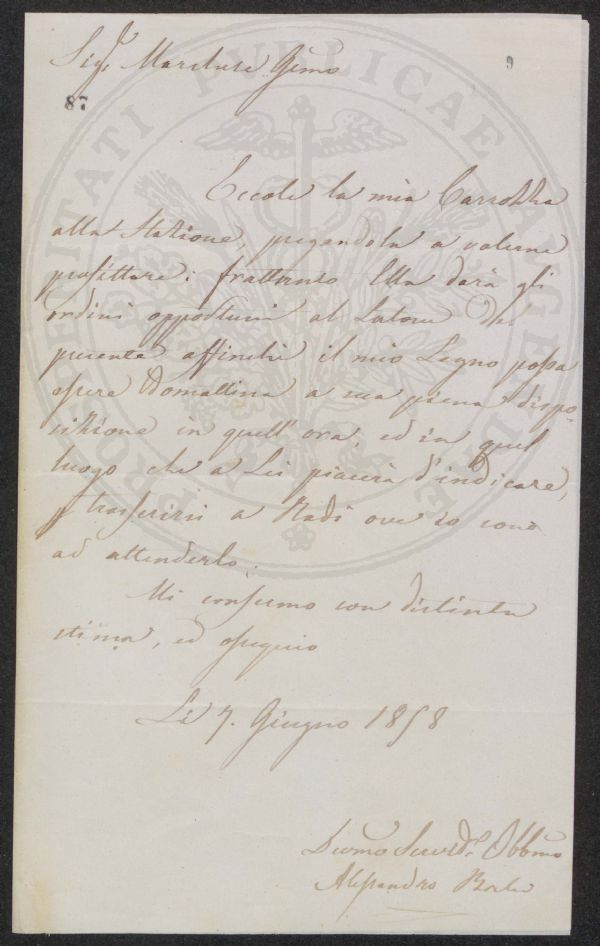 Sig.r Marchese Gēmo
9
87
Eccole la mia Carrozza
alla Stazione, pregandola a volerne
profittare: frattanto Ella darà gli
ordini opportuni al Latore del
presente affinchè il mio Legno possa
essere domattina a sua piena dispo-
sizione in quell'ora, ed in quel
luogo che a Lei piacerà d'indicare,
p trasferirsi a Radi ove io sono
ad attenderlo.
Mi confermo con distinta
stima, ed ossequio
Li 7. Giugno 1858
Devm̄o Servid.e Obbm̄o
Alessandro
PROSPERITATI PVBLICAE AVGENDAE